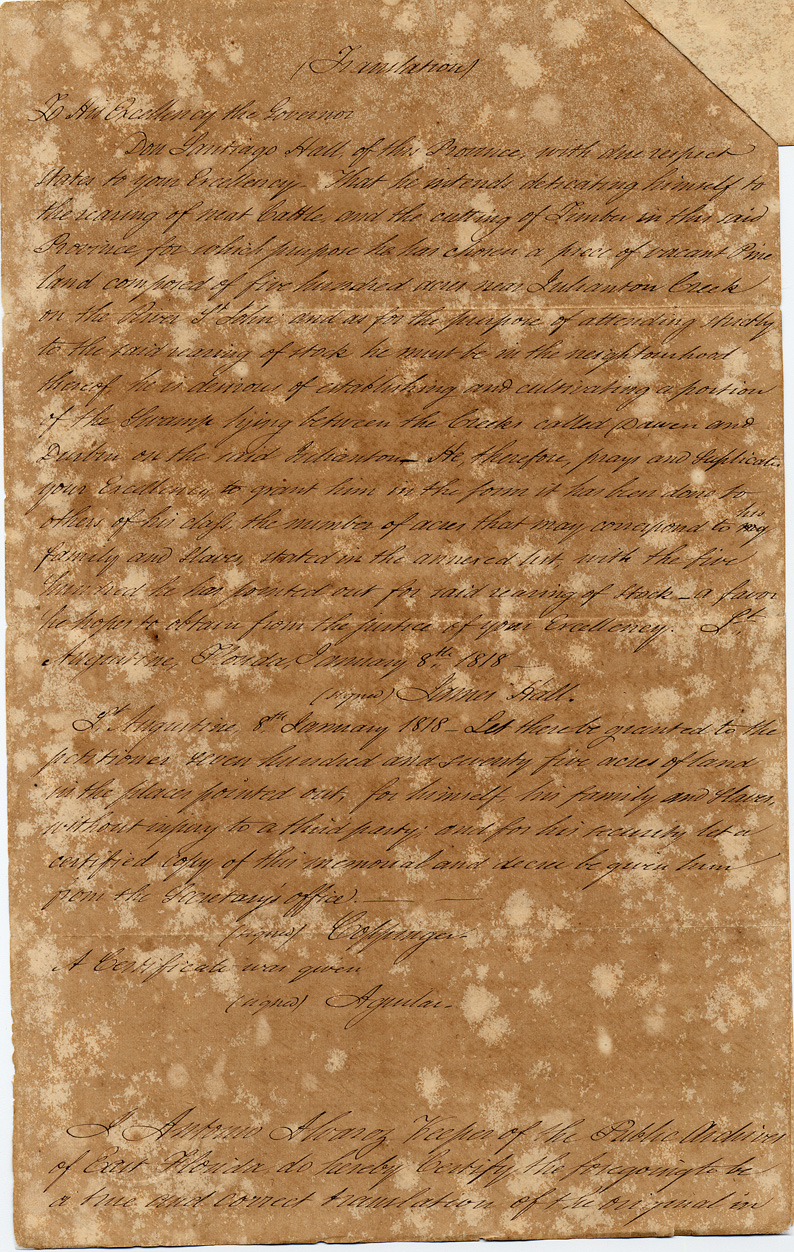 (Translation)
To His Excellency the Governor
Don Santiago Hall, of this Province, with due respect
states to your Excellency. That he intends dedicating himself to
the rearing of neat Cattle and the cutting of Timber in this said
Province, for which purpose he has chosen a piece of vacant Pine
land composed of five hundred acres near Julianton Creek
on the River St. John; and as for the purpose of attending strictly
to the said rearing of stock he must be in the neighbourhood
thereof, he is desirous of establishing and cultivating a portion
of the Swamp lying between the Creeks called and
Durbin on the said Julianton_ He, therefore, prays and Suplicates
your Excellency to grant him in the form it has been done to
others of his class, the number of acres that may correspond to his
family and Slaves, stated in the annexed list, with the five
hundred he has pointed out for said rearing of Stock_ a favor
he hopes to obtain from the justice of your Excellency. St.
Augustine, Florida, January 8th. 1818_
(signed) James Hall.
St. Augustine, 8th January 1818_ Let there be granted to the
petitioner seven hundred and seventy five acres of land
in the places pointed out, for himself, his family and Slaves,
without injury to a third party; and for his security let a
certified copy of this memorial and decree be given him
from the Secretary's office.__
(signed) Coppinger.
A Certificate was given
(signed) Aguilar.
I Antonio Alvarez Keeper of the Public Archives
of East Florida do hereby Certify the foregoing to be
a true and correct translation of the original in